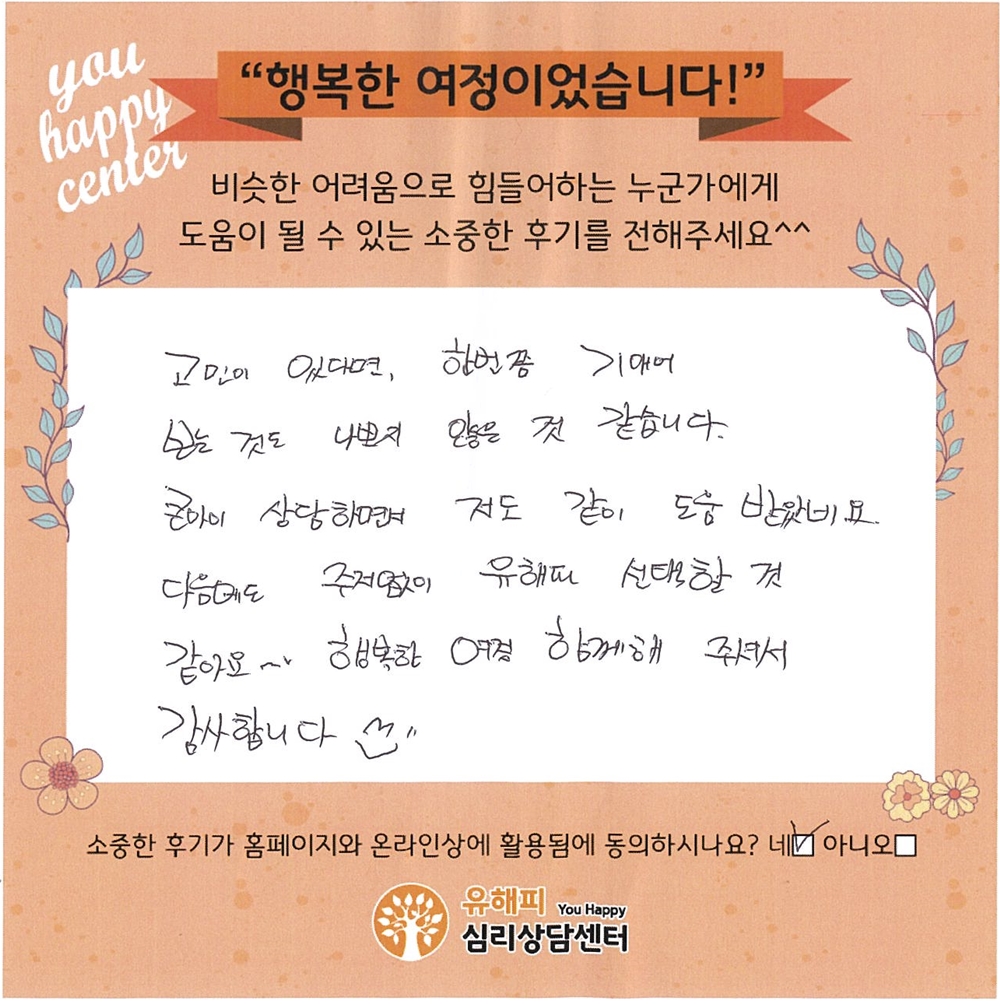 you
happy
center
“행복한 여정이었습니다!”
비슷한 어려움으로 힘들어하는 누군가에게
도움이 될 수 있는 소중한 후기를 전해주세요^^
고민이 있다면, 한번쯤 기대어
보는 것도 나쁘지 않을 것 같습니다.
큰아이 상담하면서 저도 같이 도움 받았네요.
다음에도 주저없이 유해피 선택할 것
같아요~ 행복한 여정 함께해 주셔서
감사합니다
소중한 후기가 홈페이지와 온라인상에 활용됨에 동의하시나요? 네☑ 아니오☐
유해피 You Happy
심리상담센터